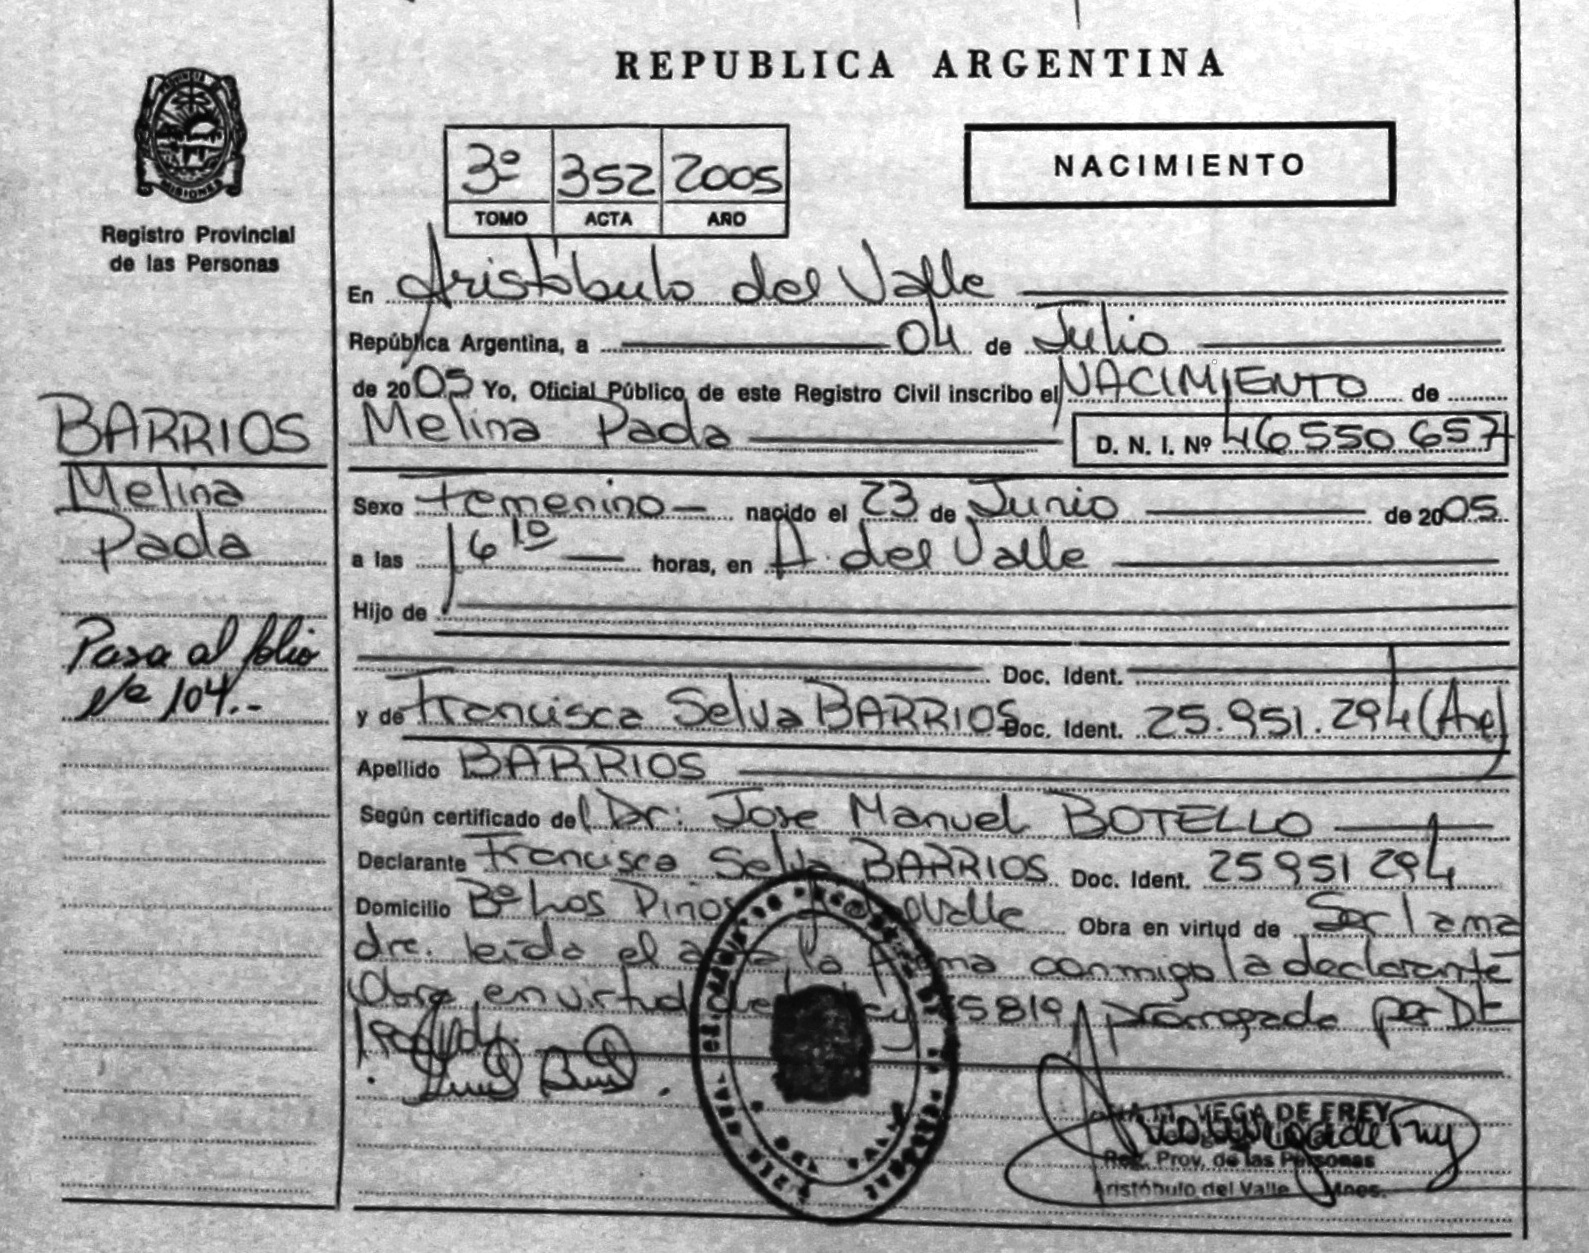 REPUBLICA ARGENTINA
3º 352 2005
TOMO ACTA AÑO
NACIMIENTO
MISIONES
Registro Provincial
de las Personas
BARRIOS
Melina
Pada
Pasa al folio
Nº 104.-
En Aristóbulo del Valle
República Argentina, a 04 de Julio
de 2005 Yo, Oficial Público de este Registro Civil inscribo el NACIMIENTO de
Melina Pada D. N. I. Nº 46550657
Sexo Femenino nacido el 23 de Junio de 2005
a las 16 10 horas, en A. del Valle
Hijo de
Doc. Ident.
y de Francisca Selva BARRIOS Doc. Ident. 25.951.294 (Arg)
Apellido BARRIOS
Según certificado del Dr: Jose Manuel BOTELLO
Declarante Francisca Selva BARRIOS Doc. Ident. 25951294
Domicilio Bº Los Pinos Valle Obra en virtud de Ser la ma
dre. leída el acta la firma conmigo la declarante
Obra en virtud de 15819, prorrogada por
M. VEGA DE FREY
Reg. Prov. de las Personas
Aristóbulo del Valle Mnes.